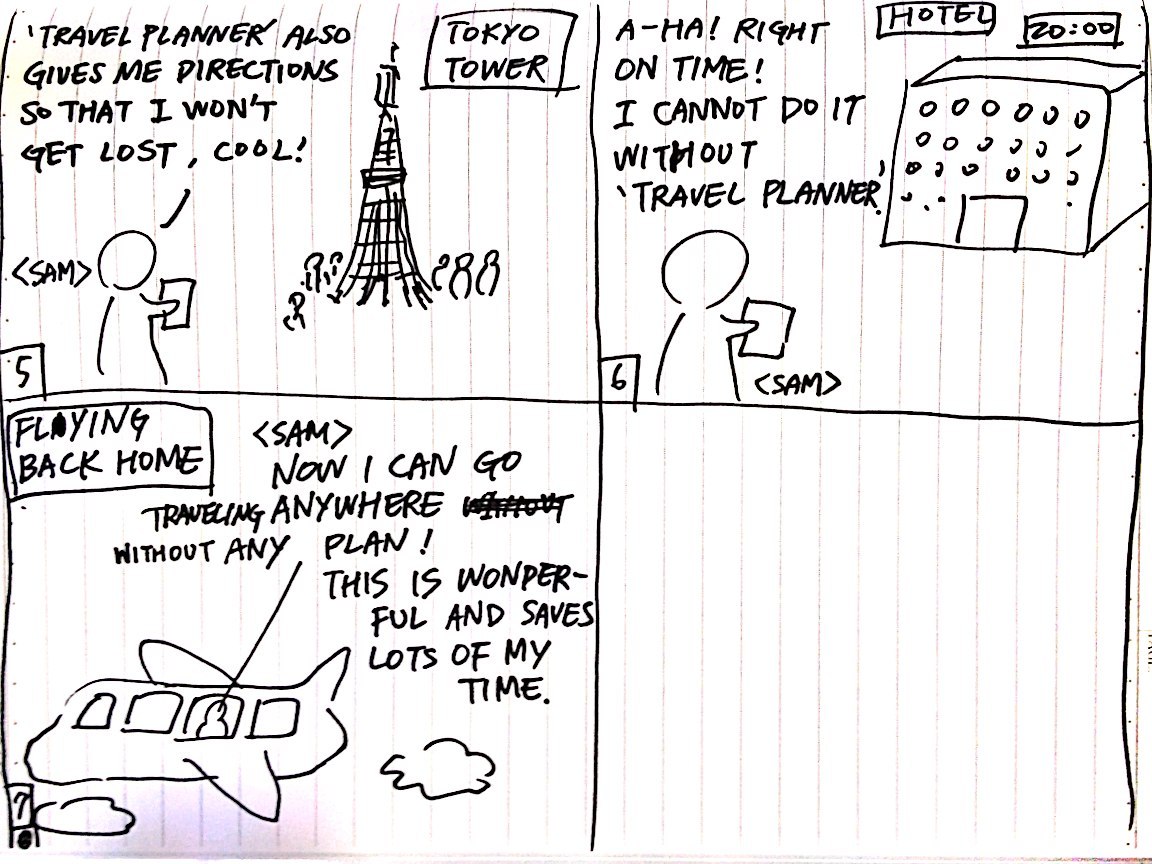 'TRAVEL PLANNER' ALSO
GIVES ME DIRECTIONS
SO THAT I WON'T
GET LOST, COOL!
TOKYO
TOWER
<SAM>
5
A-HA! RIGHT
ON TIME!
I CANNOT DO IT
WITHOUT
'TRAVEL PLANNER'.
HOTEL
20:00
<SAM>
6
FLYING
BACK HOME
<SAM>
NOW I CAN GO
TRAVELING ANYWHERE
WITHOUT ANY PLAN!
THIS IS WONDER-
FUL AND SAVES
LOTS OF MY
TIME.
7